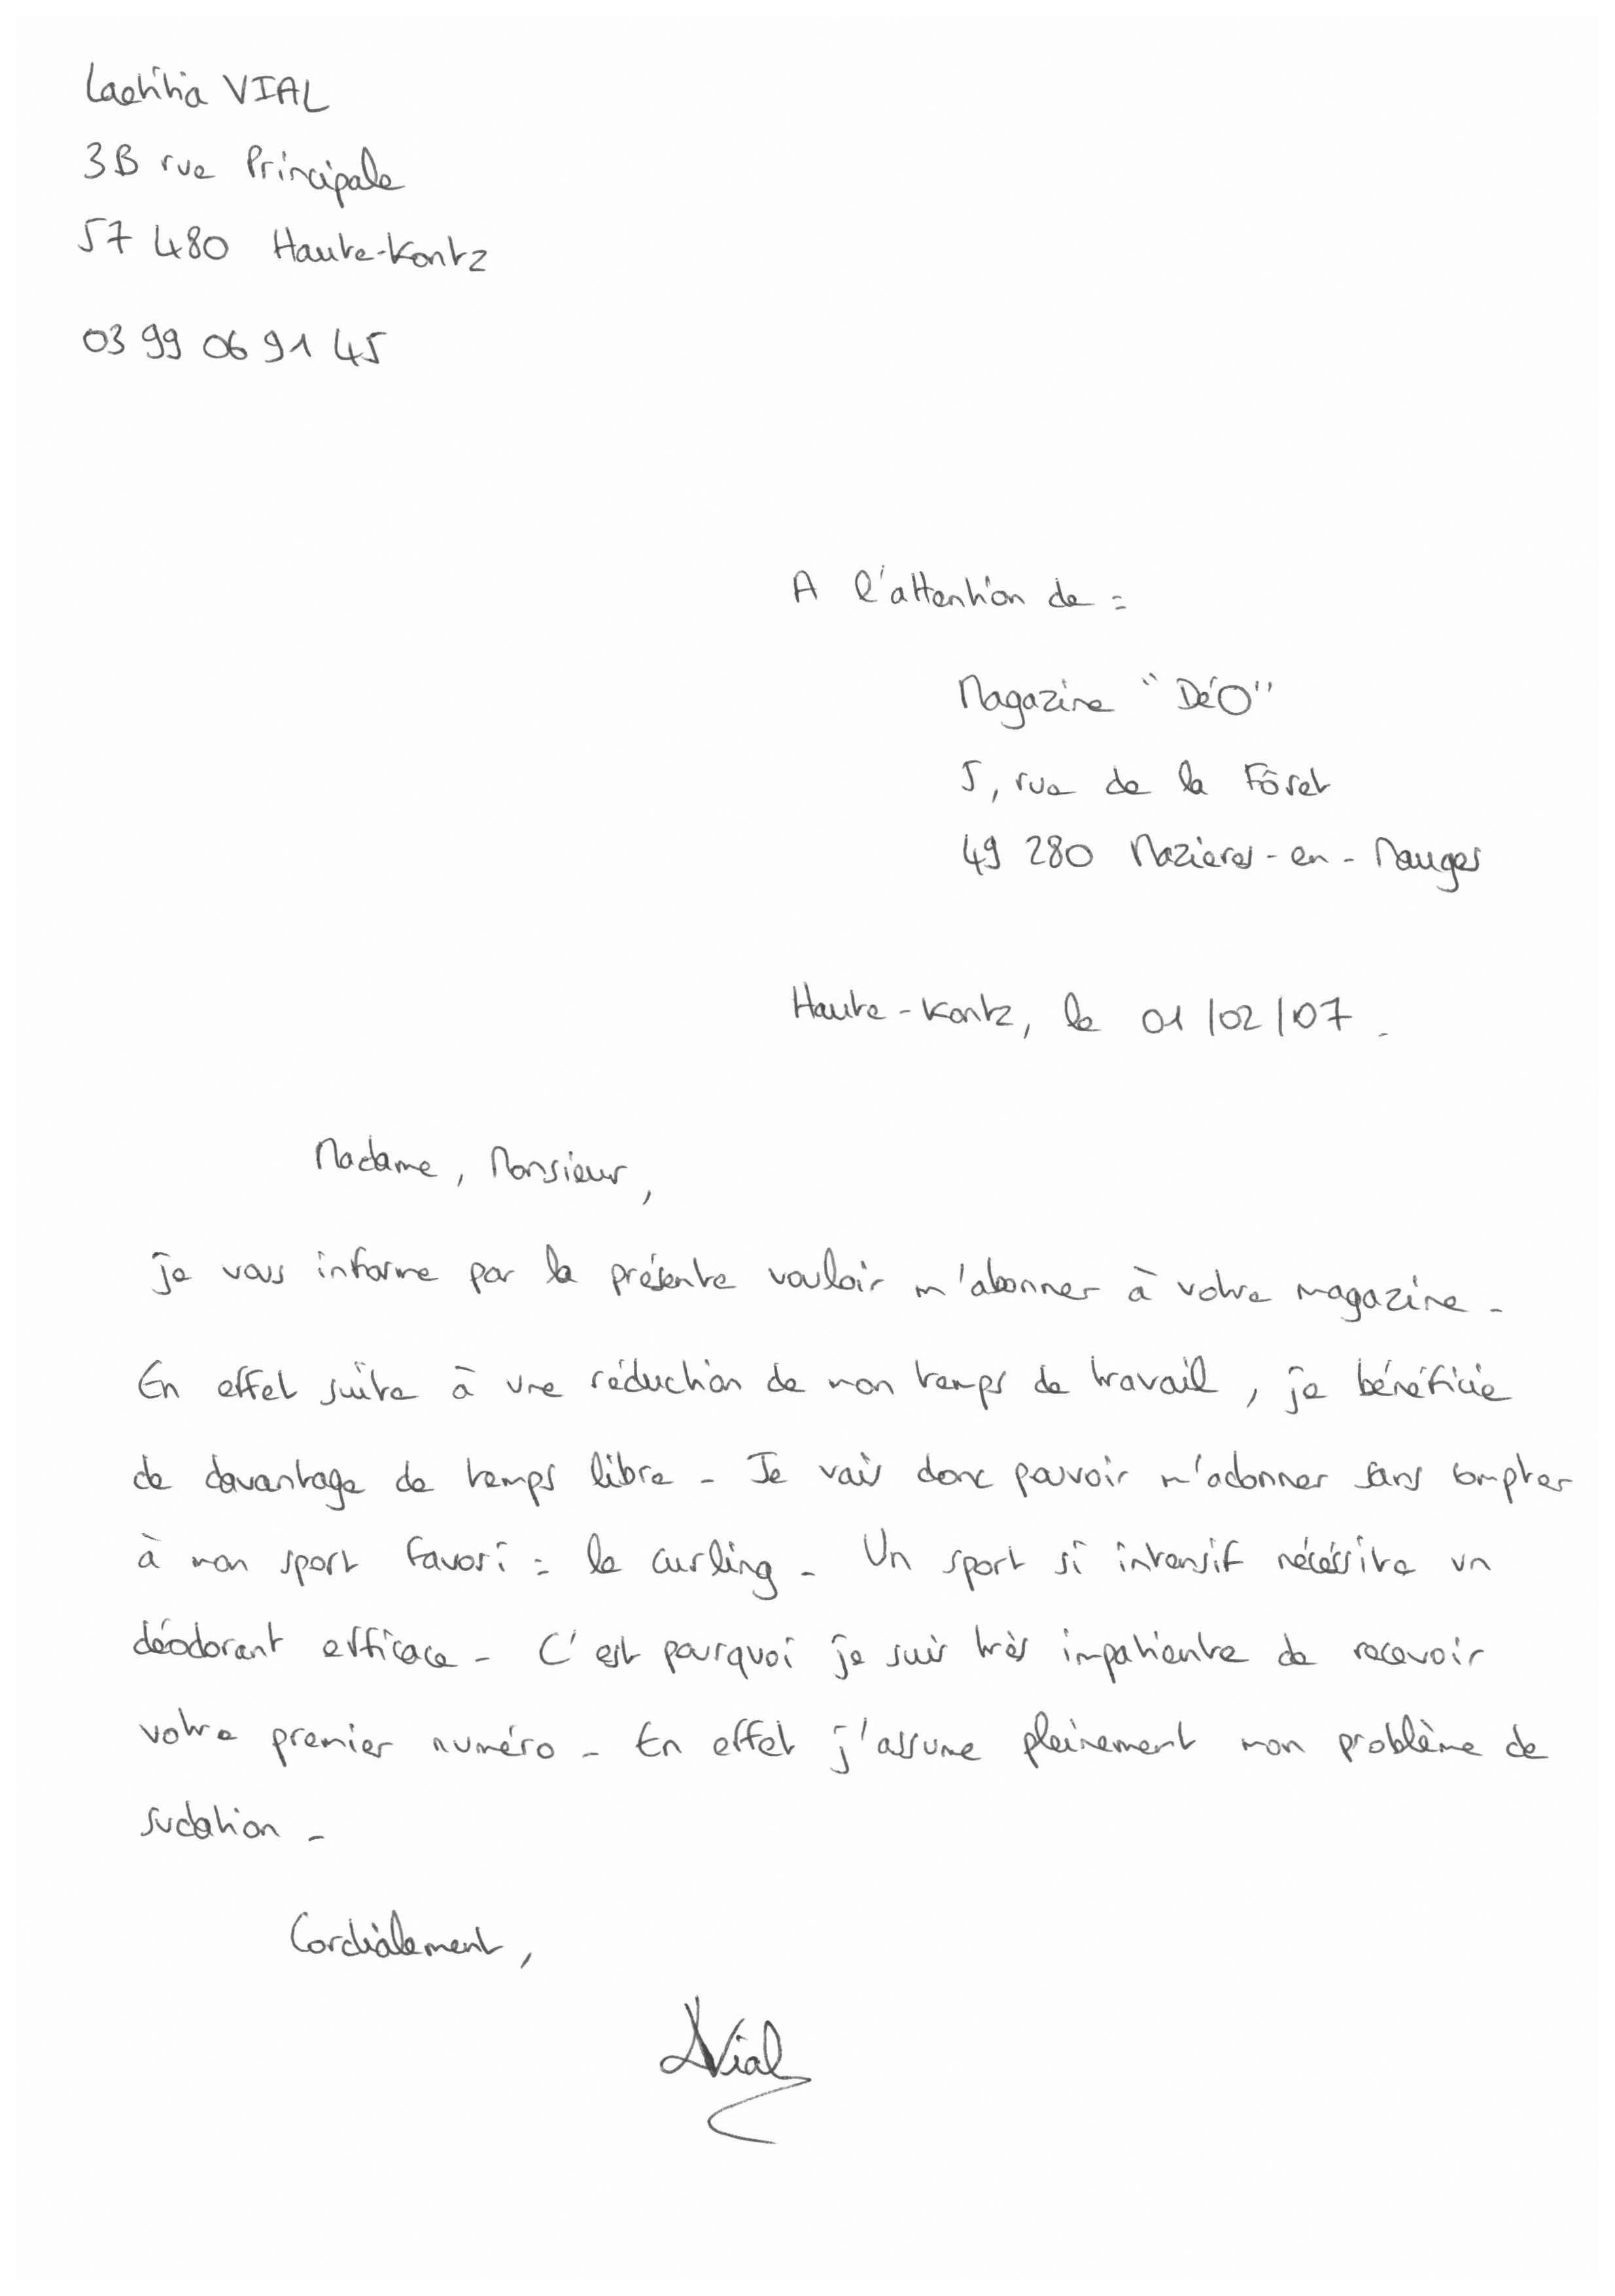 Laetitia VIAL
3B rue Principale
57 480 Haute-Kontz
03 99 06 91 45
A l'attention de :
Magazine "DéO"
5, rue de la Fôret
49 280 Mazieres-en-Mauges
Haute-Kontz, le 01/02/07.
Madame, Monsieur,
je vous informe par la présente vouloir m'abonner à votre magazine.
En effet suite à une réduction de mon temps de travail, je bénéficie
de davantage de temps libre. Je vais donc pouvoir m'adonner sans compter
à mon sport favori : le curling. Un sport si intensif nécéssite un
déodorant efficace. C'est pourquoi je suis très impatiente de recevoir
votre premier numéro. En effet j'assume pleinement mon problème de
sudation.
Cordialement,
LVial